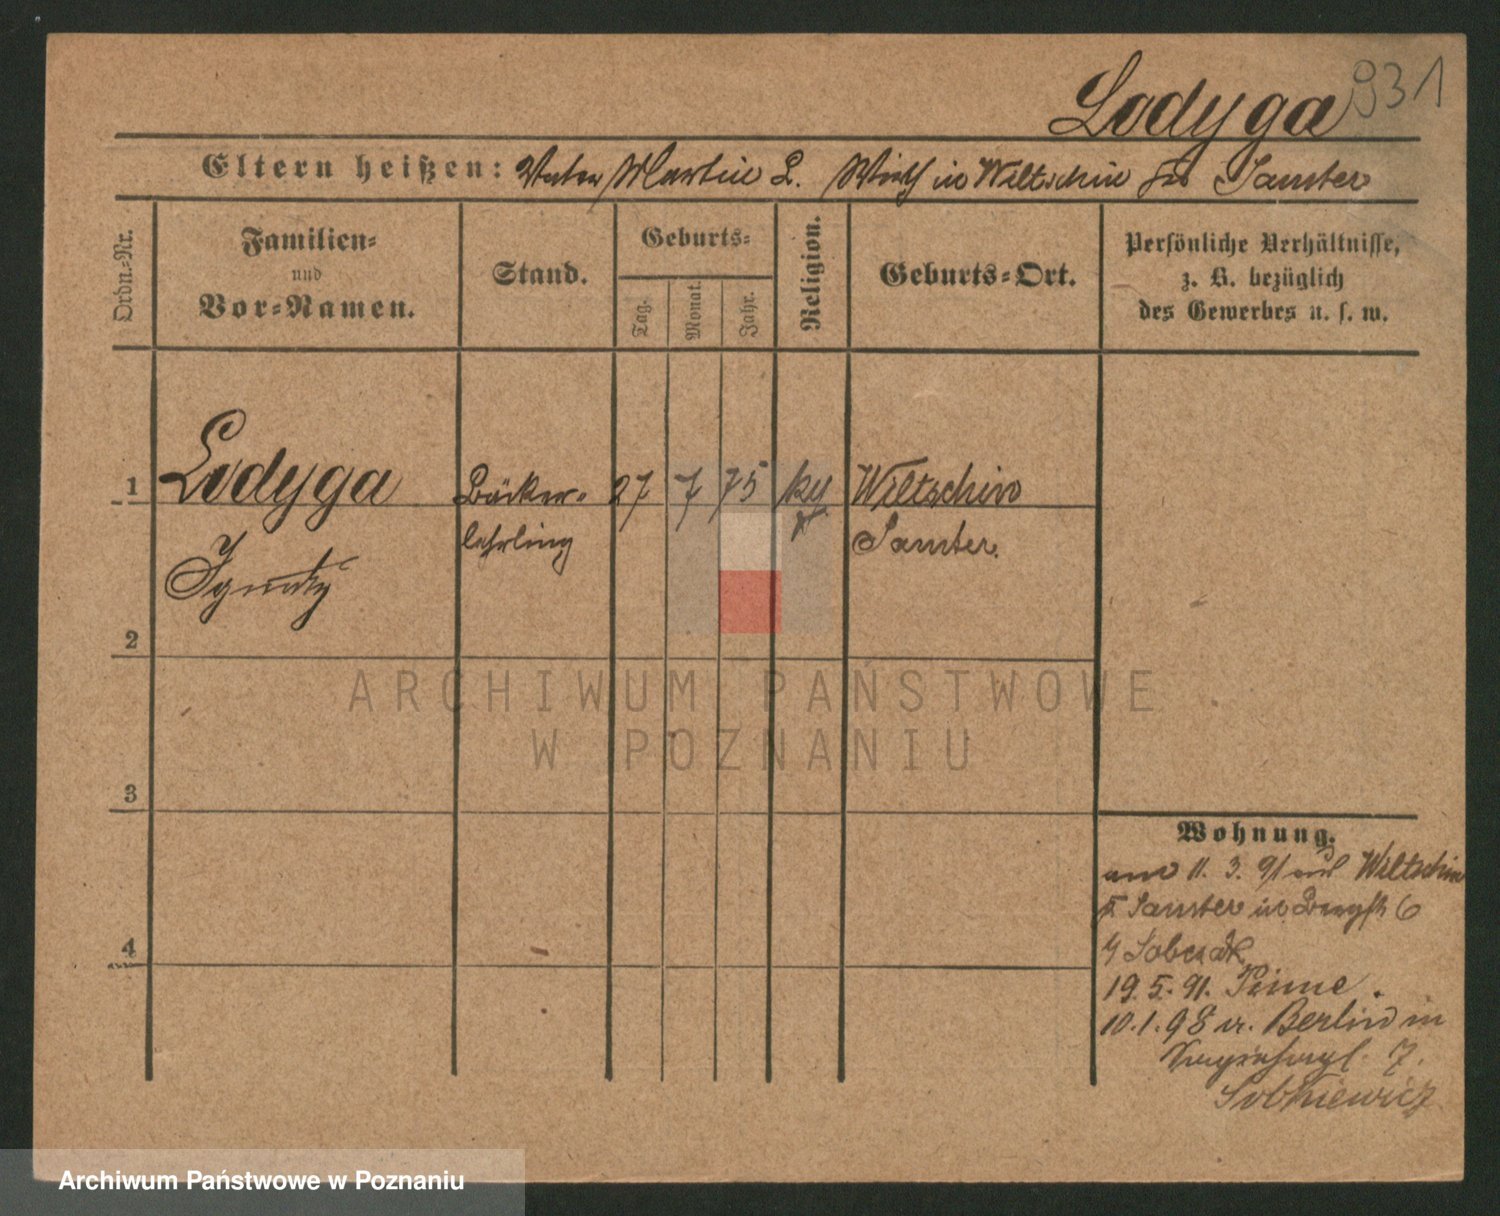 931
Lodyga
Eltern heißen: Vater Martin L. Wirth in Wiltschin Kr Samter
Ordn.-Nr.
Familien-
und
Vor-Namen.
Stand.
Geburts-
Tag.
Monat.
Jahr.
Religion.
Geburts-Ort.
Persönliche Verhältnisse,
z. B. bezüglich
des Gewerbes u. s. w.
1
Lodyga
Bäcker-
27 7 75
Wiltschin
lehrling
Samter.
Ignatz
2
ARCHIWUM PAŃSTWOWE
W POZNANIU
3
4
Wohnung.
11. 3. 91 Wiltschin
Samter in 6
Sobczak
19. 5. 91. Pinne.
10. 1. 98 v. Berlin in
7.
Sobkiewicz
Archiwum Państwowe w Poznaniu